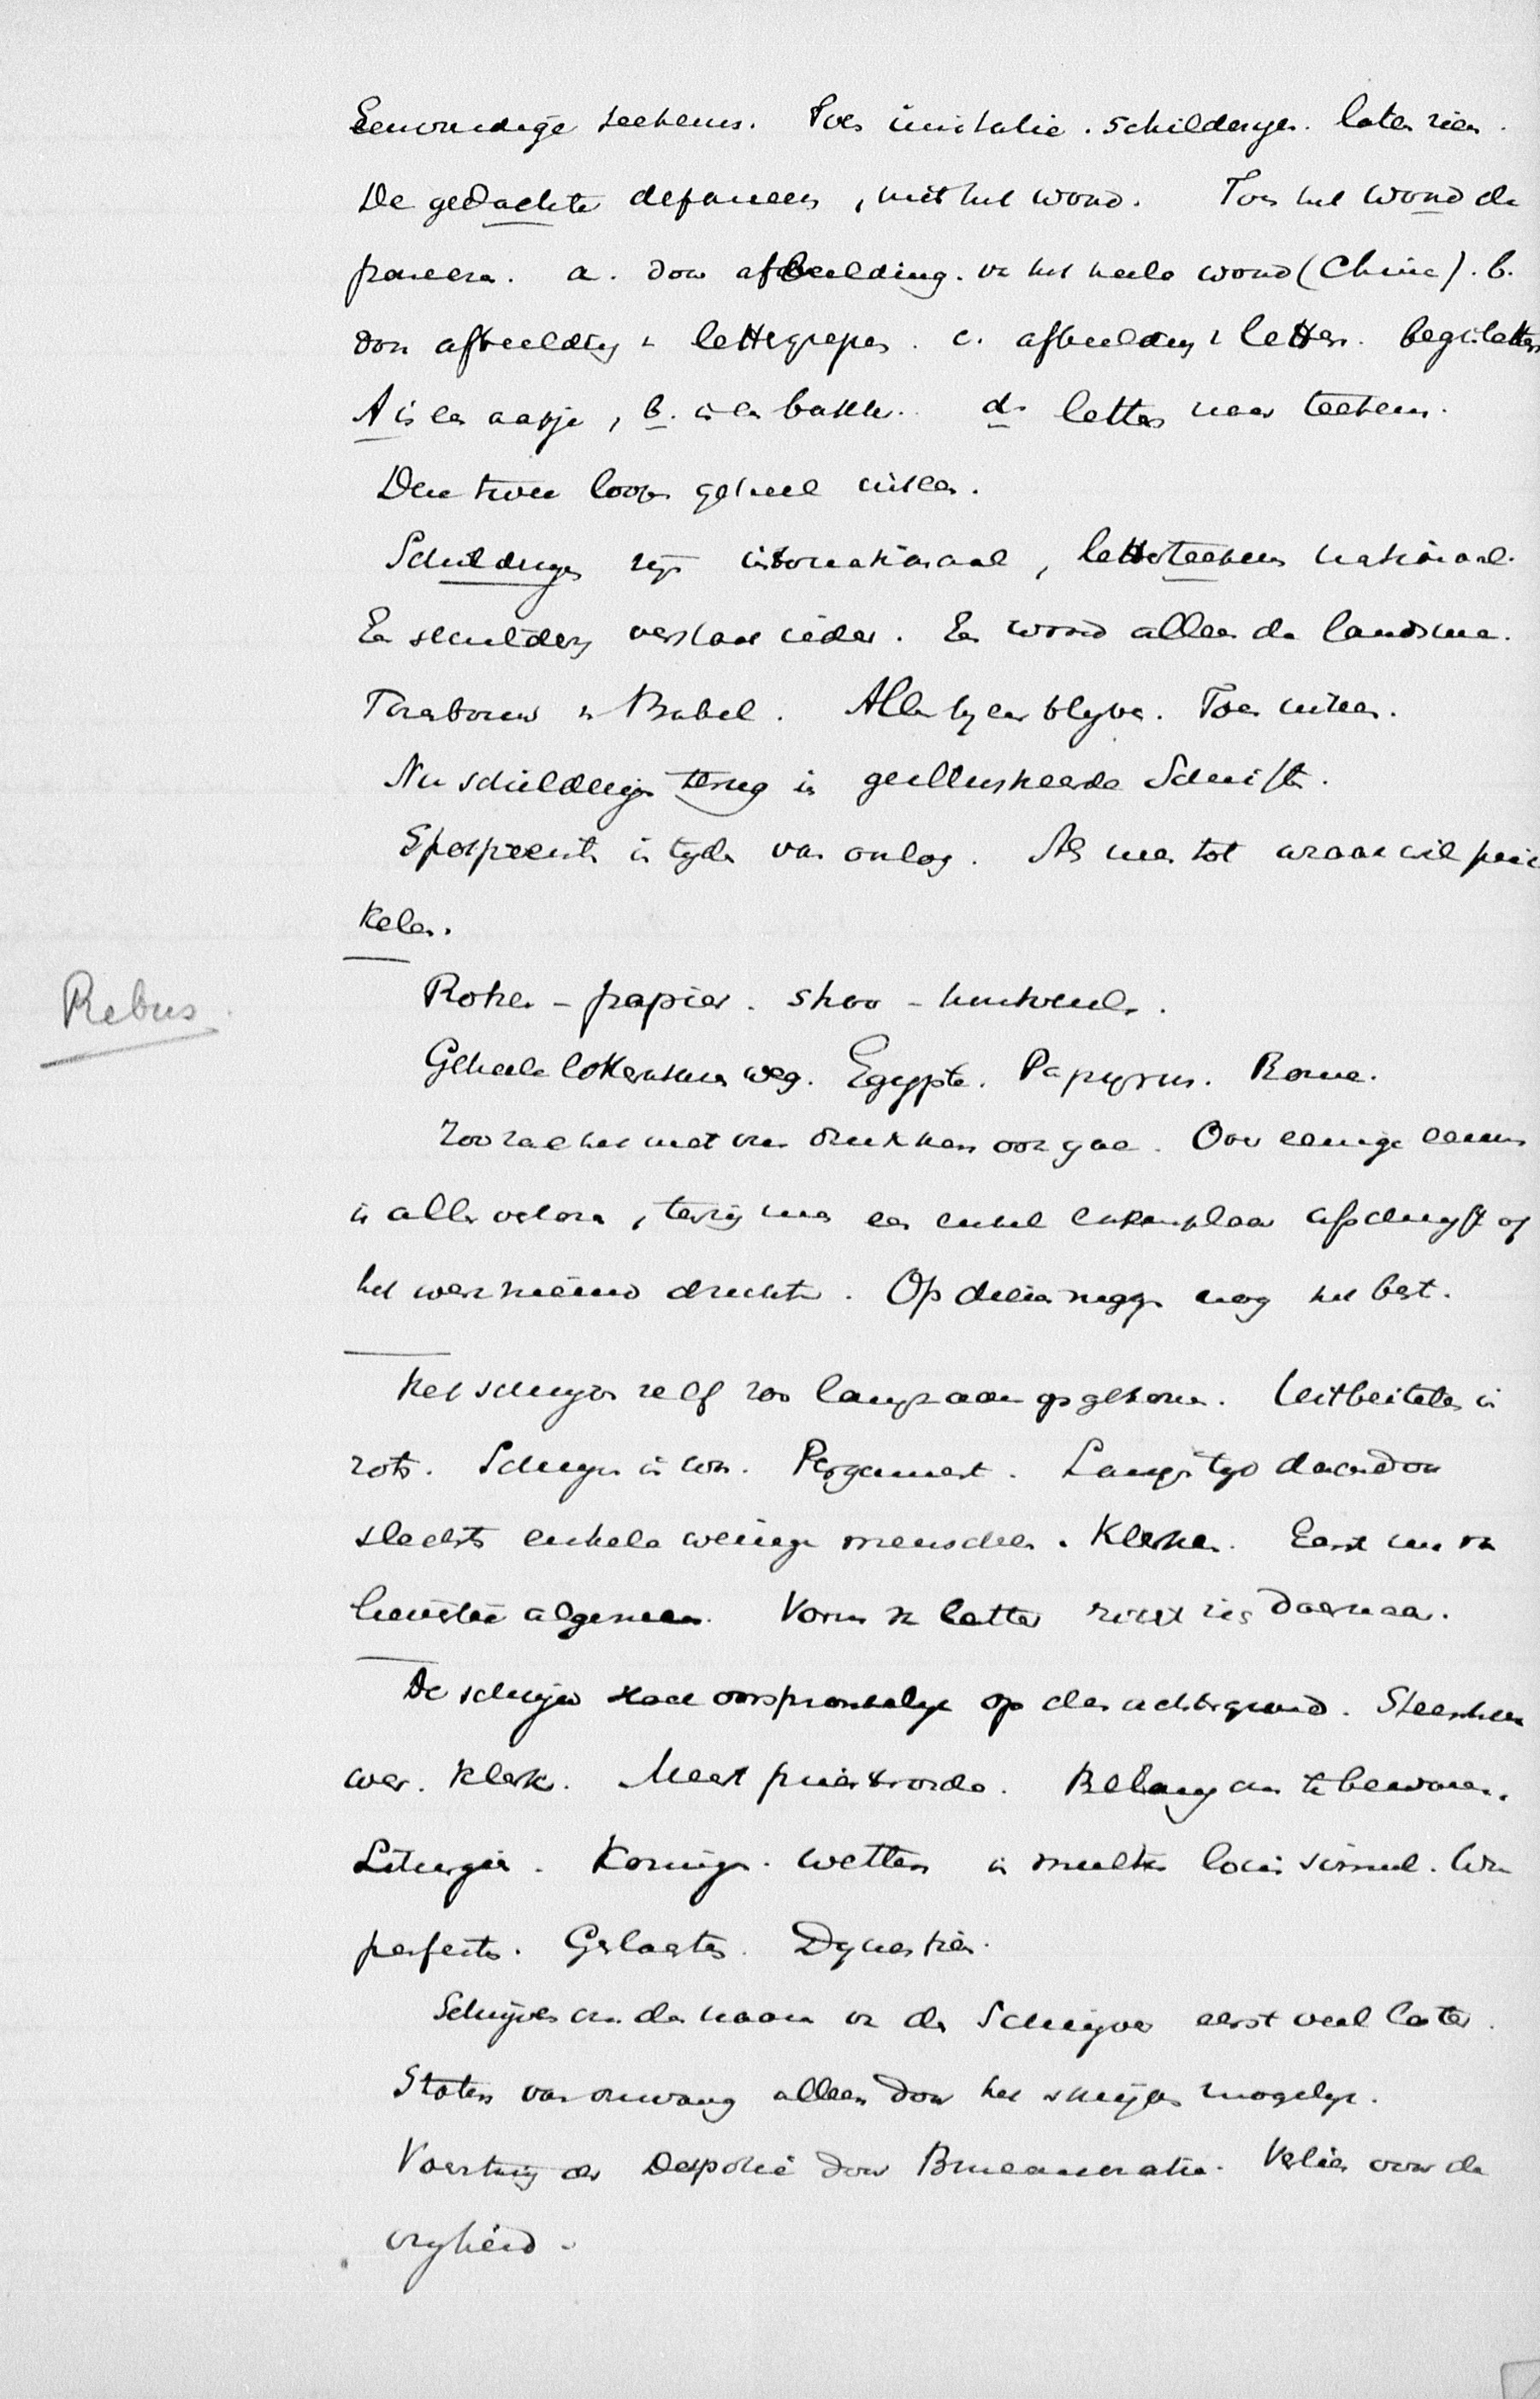 Eenvoudige teekens. Toen imitatie. schilderyen. laten zien.
De gedachte depaneeren, niet het woord. Toen het woord de
paneeren. a. door afbeelding. vn het heele woord (China). b.
door afbeelding v lettergrepen. c. afbeelding v letters. beginletters
A is een aapje, b. is een bakker. d. letters naar teekens.
Deze twee loopen geheel uiteen.
Schilderyen zyn internationaal, letterteekens nationaal.
Een schildery verstaat ieder. Een woord alleen de landsman.
Torenbouw v Babel. Allen byeen blyven. Toen uiteen.
Nu schilderyen terug in geïllustreerde Schriften.
Spotprenten in tyden van oorlog. Als men tot wraak wil prik
kelen.
Rebus.
Rotsen - papier. stroo - houtvezels.
Geheele letterkunde weg. Egypte. Papyrus. Rome.
Zoo zal het met ons drukken ook gaan. Over eenige eeuwen
is alles verloren, tenzy men een enkel exemplaar afschryft of
het weer nieuw drukte. Op nog het best.
Het schryven zelf zoo langzaam opgekomen. Uitbeitelen in
rots. Schryven in was. Pergament. Langen tyd daardoor
slechts enkele weinige menschen. Klerken. Eerst nu on
algemeen. Vorm vn letter richt zich daarnaar.
De schryver staat oorspronkelyk op den achtergrond. Steenhou
wer. Klerk. Meest priesterorde. Belang om te bewaren.
Liturgie. Koningen. wetten in multis locis simul. Usu
perfecta. Geslachten. Dynastien.
Schryven om den naam vn den Schryver eerst veel later.
Staten van omvang alleen door het schryven mogelyk.
Voertuig der Despotie door Bureaucratie. Verlies voor de
vryheid.